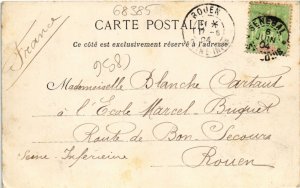 68385
CARTE POSTALE
Ce côté est exclusivement réservé à l'adresse
France
958)
ROUEN
Mademoiselle Blanche Cartaut
à l'École Marcel-Buquet
Route de Bon-Secours
Seine-Inférieure
Rouen